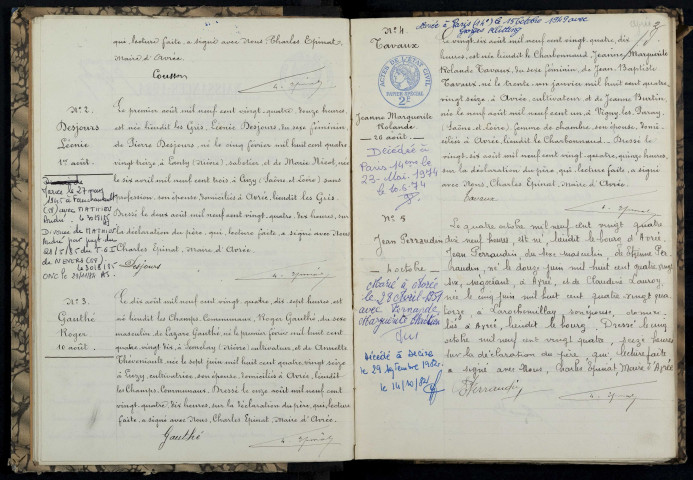 que, lecture faite, a signé avec Nous Charles Epinat,
Maire d'Avrée.
Cousson
C. Epinat
N° 2.
Desjours
Léonie
1er août.
Le premier août mil neuf cent vingt-quatre, douze heures,
est née, lieudit les Gris, Léonie Desjours, du sexe féminin,
de Pierre Desjours, né le cinq février mil huit cent quatre
vingt treize à (Nièvre), sabotier, et de Marie Nicot, née
le six avril mil neuf cent trois à Luzy (Saône et Loire) sans
profession, son épouse, domiciliés à Avrée, lieudit les Gris.
Dressé le deux août mil neuf cent vingt-quatre, dix heures, sur
la déclaration du père, qui, lecture faite, a signé avec Nous
Charles Epinat, Maire d'Avrée.
Desjours
C. Epinat
Mariée le 27 mars
1945 à
(58) avec MATHIEU
André
Divorcée de MATHIEU
André par jugt du
T G I
de NEVERS (58)
N° 3.
Gauthé
Roger
10 août.
Le dix août mil neuf cent vingt-quatre, dix sept heures, est
né, lieudit les Champs Communaux, Roger Gauthé, du sexe
masculin, de Lazare Gauthé, né le premier février mil huit cent
quatre vingt dix, à Semelay (Nièvre) cultivateur, et de Annette
Thévenault, née le sept juin mil huit cent quatre vingt seize
à Luzy, cultivatrice, son épouse, domiciliés à Avrée, lieudit
les Champs Communaux. Dressé le onze août mil neuf cent
vingt quatre, dix heures, sur la déclaration du père, qui, lecture
faite, a signé avec Nous, Charles Epinat, Maire d'Avrée.
Gauthé
C. Epinat
Mariée à Paris (14e) le 15 octobre 1949 avec
Georges
2
N° 4.
Tavaux
ACTES DE L'ÉTAT CIVIL
PAPIER SPÉCIAL
2F
Jeanne Marguerite
Rolande
26 août.
Décédée à
Paris 14ème le
23 Mai 1974
le 10-6-74
Le vingt six août mil neuf cent vingt quatre, dix
heures, est née, lieudit le Charbonnaud, Jeanne Marguerite
Rolande Tavaux, du sexe féminin, de Jean Baptiste
Tavaux, né le trente un janvier mil huit cent quatre
vingt seize, à Avrée, cultivateur, et de Jeanne Burtin,
née le neuf août mil neuf cent un à Vigny les Paray
(Saône et Loire), femme de chambre, son épouse, domi-
ciliés à Avrée, lieudit le Charbonnaud. Dressé le
vingt six août mil neuf cent vingt quatre, quinze heures,
sur la déclaration du père, qui, lecture faite, a signé
avec Nous, Charles Epinat, Maire d'Avrée.
Tavaux
C. Epinat
N° 5
Jean Perraudin
4 octobre
Marié à Avrée
le 28 Avril 1951
avec Fernande
Marguerite
Décédé à Decize
le 29 septembre 1982.
le 14/10/82
Le quatre octobre mil neuf cent vingt quatre
dix neuf heures, est né, lieudit le bourg d'Avrée,
Jean Perraudin, du sexe masculin, de Etienne Per-
raudin, né le douze juin mil huit cent quatre vingt
six, négociant, à Avrée, et de Claudine Lauroy,
née le cinq juin mil huit cent quatre vingt qua-
torze, à Larochemillay, son épouse, domici-
liés à Avrée, lieudit le bourg. Dressé le cinq
octobre mil neuf cent vingt quatre, seize heures
sur la déclaration du père, qui, lecture faite
a signé avec Nous, Charles Epinat, Maire d'Avrée
Perraudin
C. Epinat